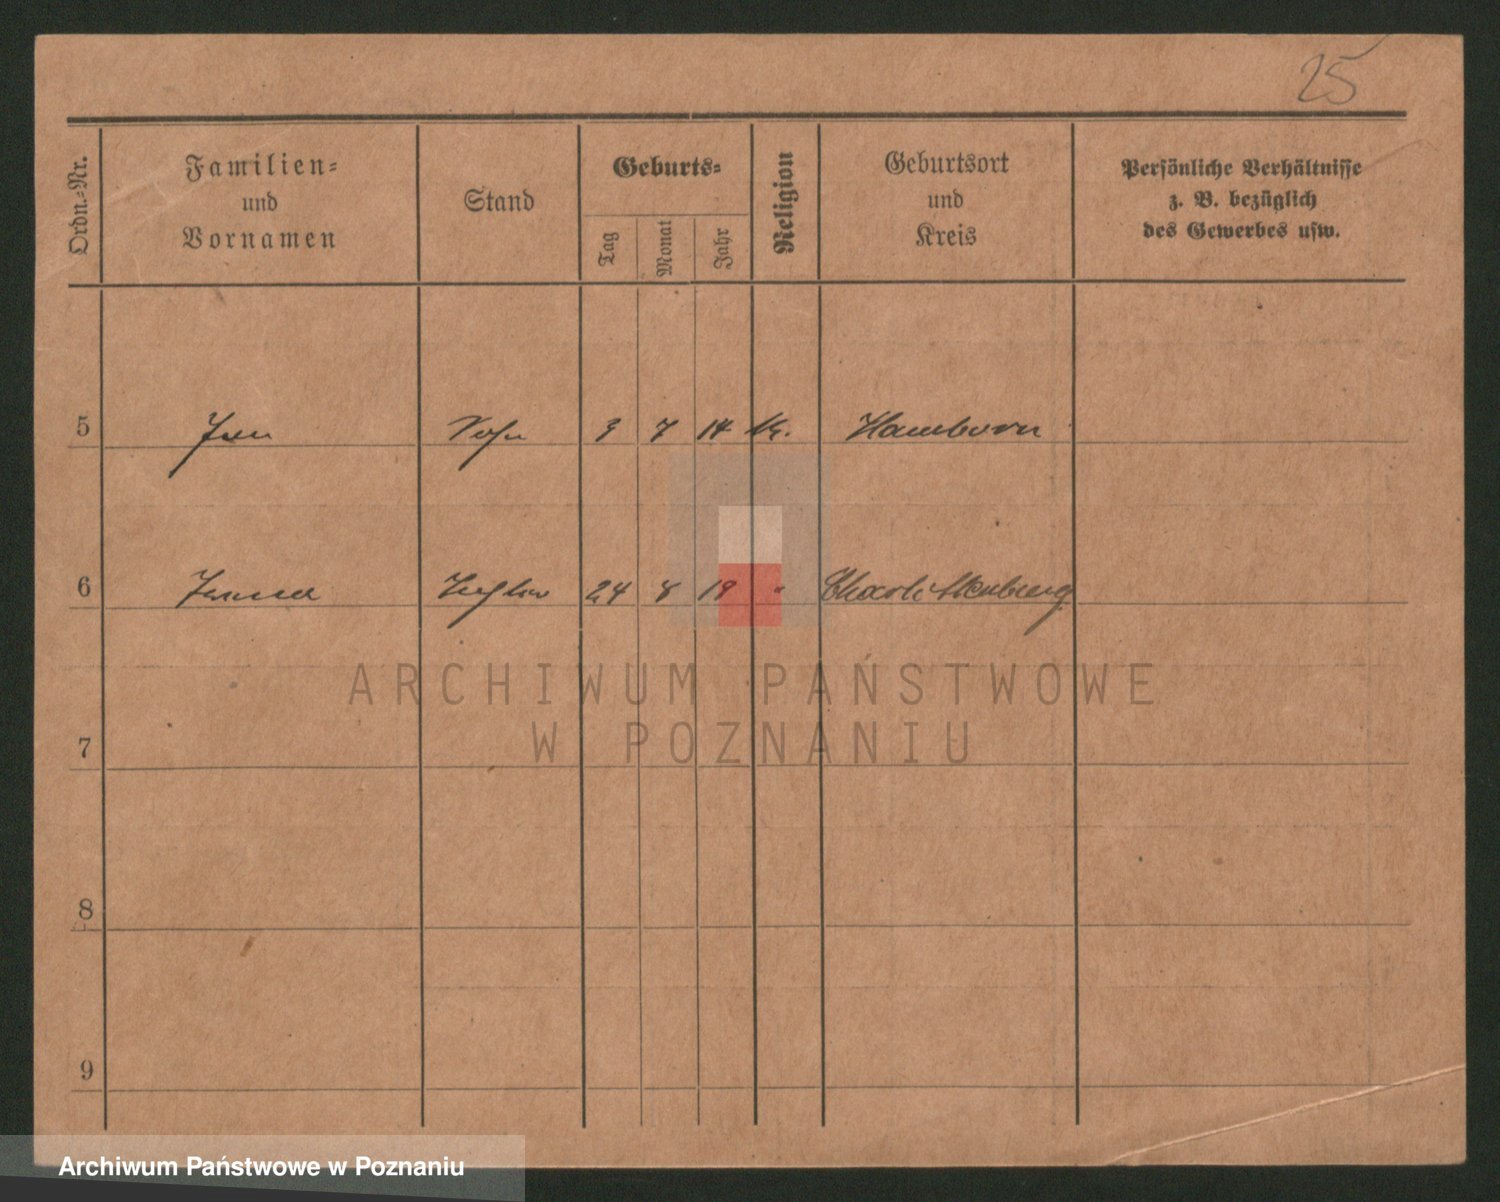 25
Ordn.-Nr.
Familien-
und
Vornamen
Stand
Geburts-
Tag
Monat
Jahr
Religion
Geburtsort
und
Kreis
Persönliche Verhältnisse
z. B. bezüglich
des Gewerbes usw.
5 Sohn 3 7 14 k. Hamborn
6 Tochter 24 8 19 " Charlottenburg
ARCHIWUM PAŃSTWOWE
W POZNANIU
7
8
9
Archiwum Państwowe w Poznaniu